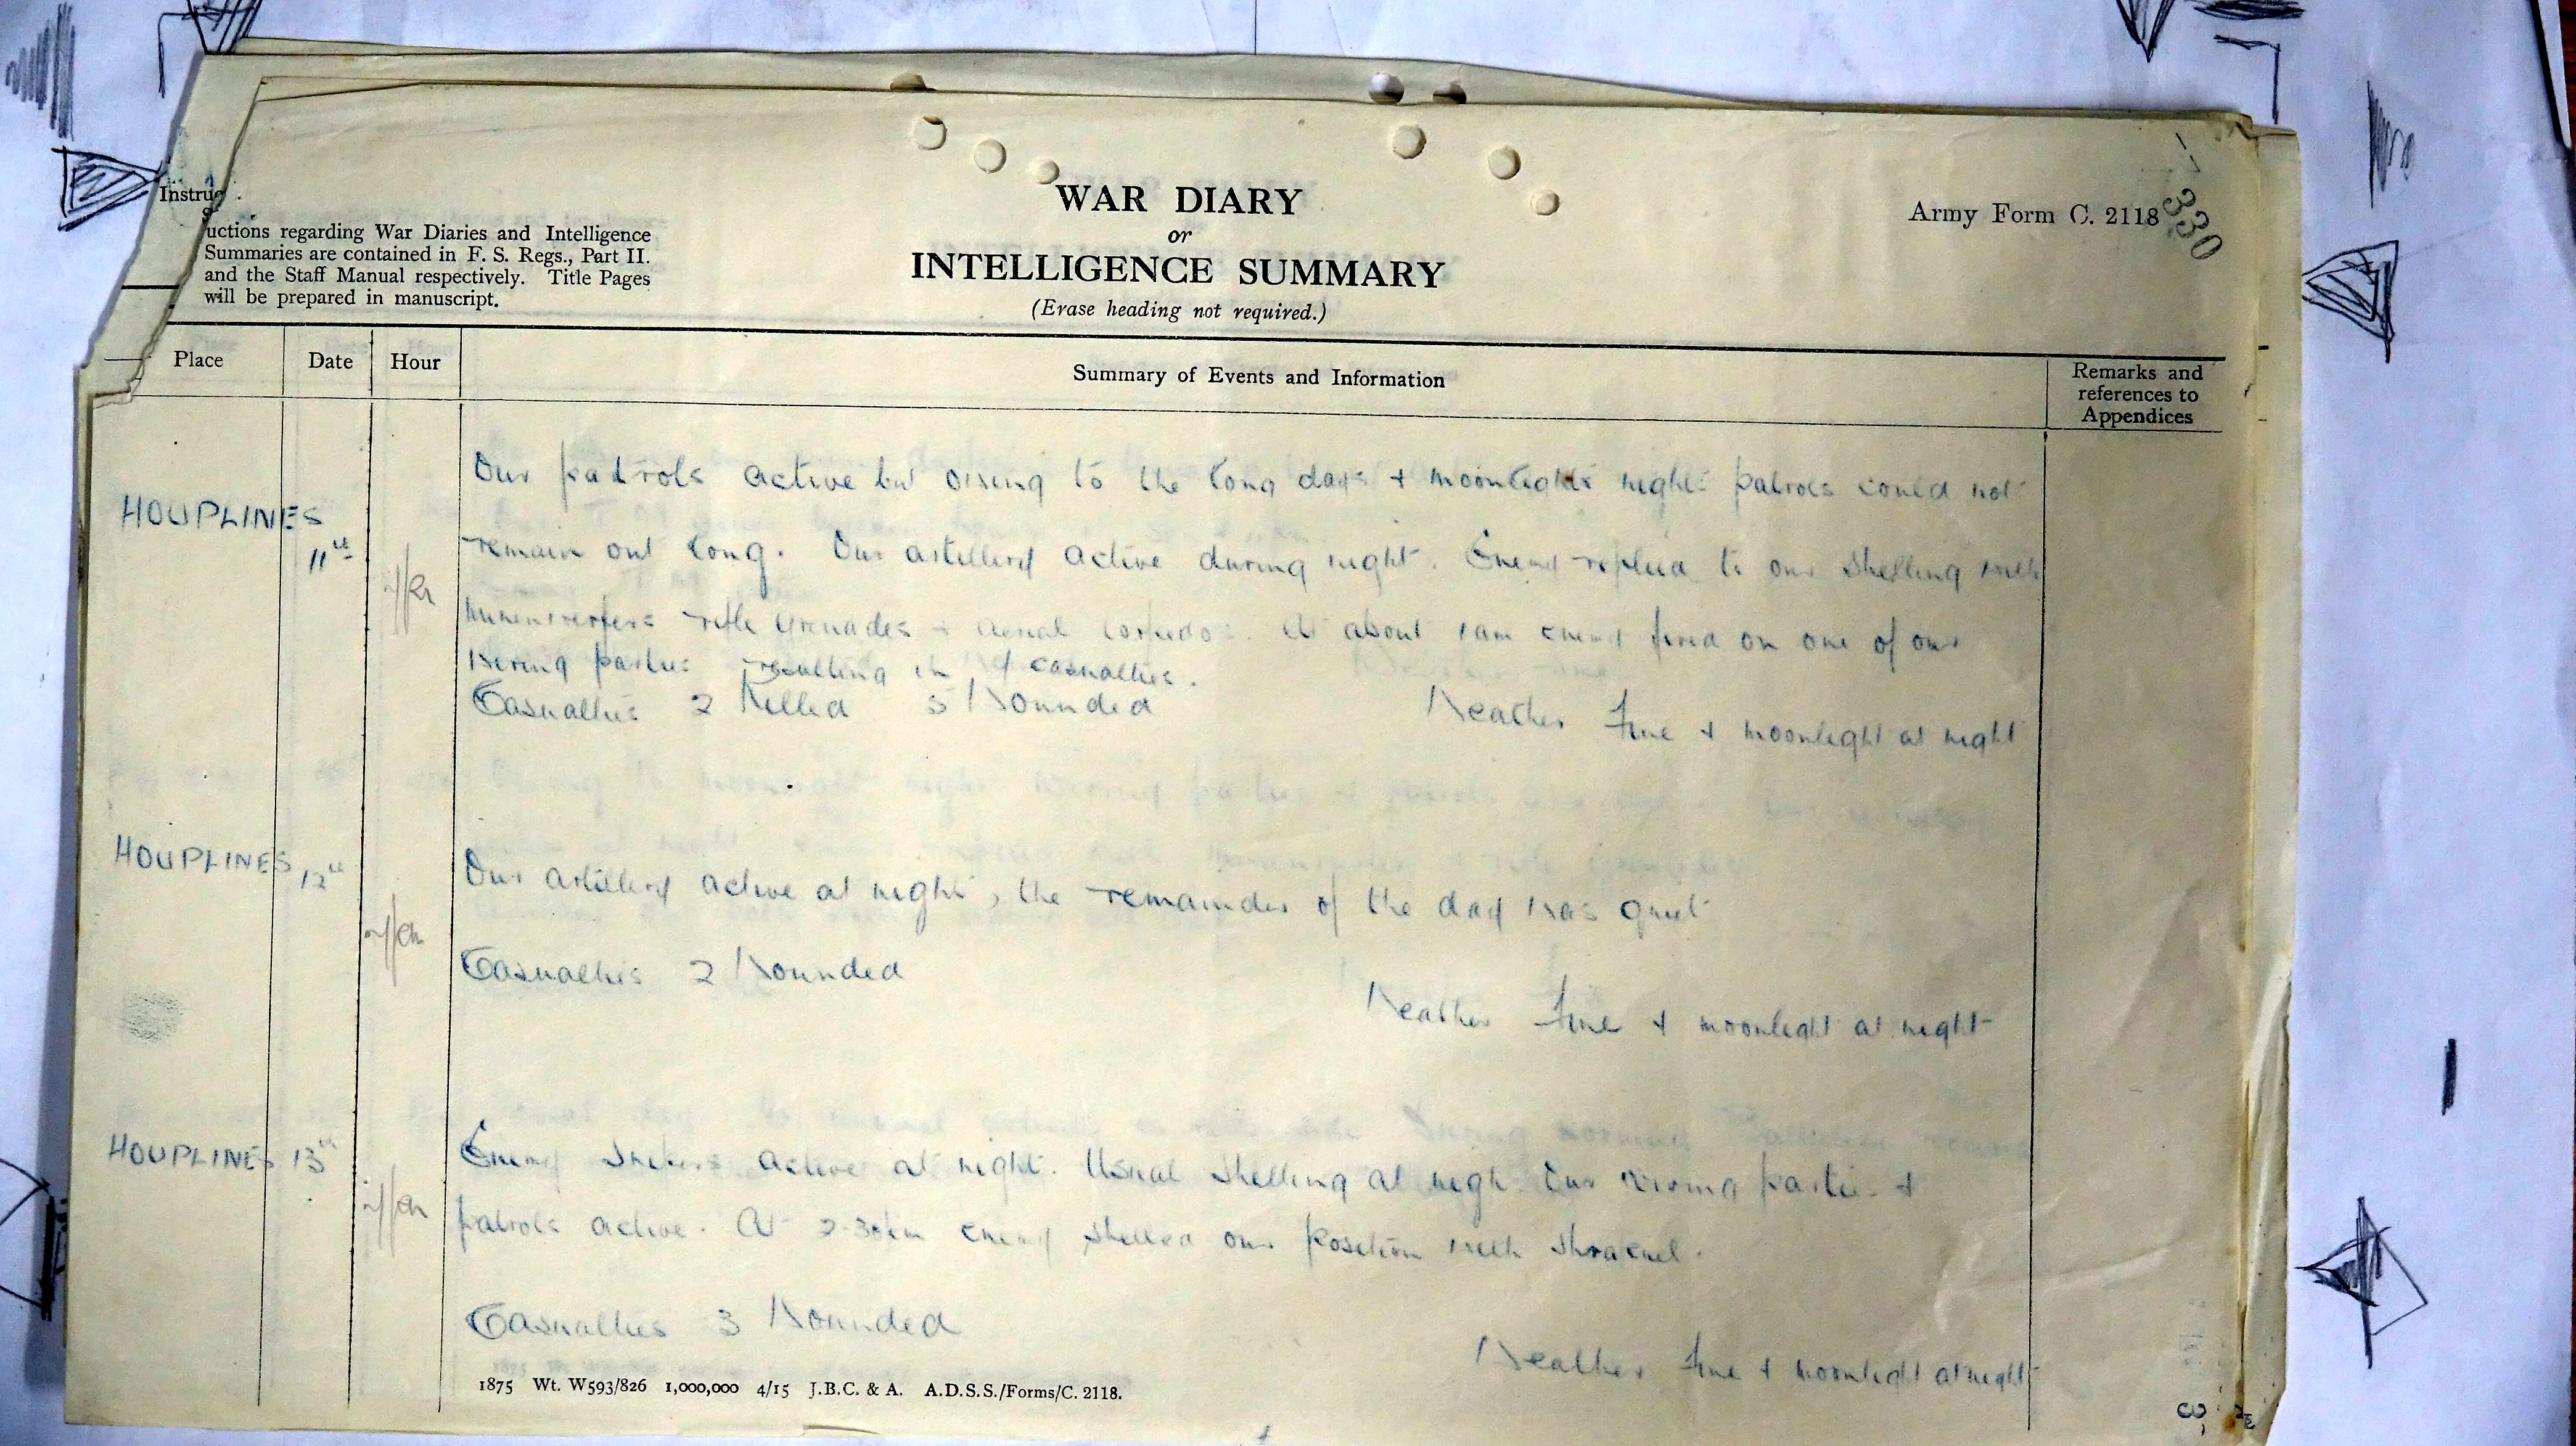 Army Form C. 2118
330
WAR DIARY
or
INTELLIGENCE SUMMARY
(Erase heading not required.)
Instruc
uctions regarding War Diaries and Intelligence
Summaries are contained in F. S. Regs., Part II.
and the Staff Manual respectively. Title Pages
will be prepared in manuscript.
Place Date Hour Summary of Events and Information Remarks and
references to
Appendices
HOUPLINES 11th
Our patrols active but owing to the long days + moonlight nights patrols could not
remain out long. Our artillery active during night. Enemy replied to our shelling with
minenwerfers rifle grenades + aerial torpedos. At about 1am enemy fired on one of our
wiring parties resulting in casualties.
Casualties 2 Killed 5 Wounded Weather Fine + moonlight at night
HOUPLINES 12th
Our artillery active at night, the remainder of the day was quiet
Casualties 2 Wounded
Weather Fine + moonlight at night
HOUPLINES 13th
Enemy snipers active at night. Usual shelling at nigh. Our wiring parties +
patrols active. At 2-30am enemy shelled our position with shrapnel.
Casualties 3 Wounded
Weather Fine + moonlight at night
1875 Wt. W593/826 1,000,000 4/15 J.B.C. & A. A.D.S.S./Forms/C. 2118.